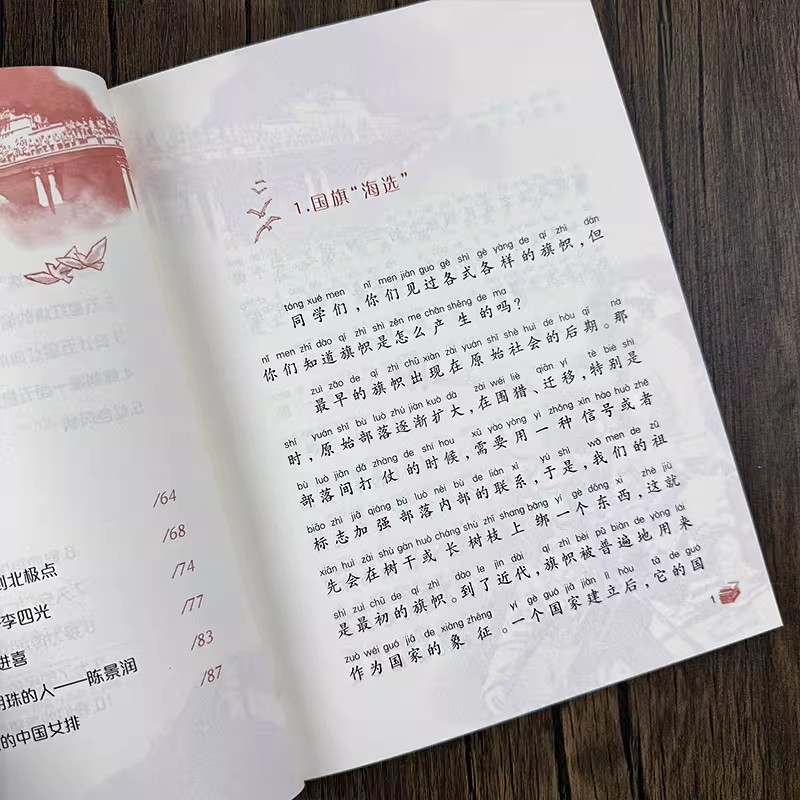 /64
/68
到北极点
/74
李四光
/77
进喜
/83
明珠的人——陈景润
/87
的中国女排
1.国旗“海选”
tóng xué men nǐ men jiàn guo gè shì gè yàng de qí zhì dàn
同学们，你们见过各式各样的旗帜，但
nǐ men zhī dào qí zhì shì zěn me chǎn shēng de ma
你们知道旗帜是怎么产生的吗？
zuì zǎo de qí zhì chū xiàn zài yuán shǐ shè huì de hòu qī nà
最早的旗帜出现在原始社会的后期。那
shí yuán shǐ bù luò zhú jiàn kuò dà zài wéi liè qiān yí tè bié shì
时，原始部落逐渐扩大，在围猎、迁移，特别是
bù luò jiān dǎ zhàng de shí hou xū yào yòng yì zhǒng xìn hào huò zhě
部落间打仗的时候，需要用一种信号或者
biāo zhì jiā qiáng bù luò nèi bù de lián xì yú shì wǒ men de zǔ
标志加强部落内部的联系，于是，我们的祖
xiān huì zài shù gàn huò cháng shù zhī shang bǎng yí gè dōng xi zhè jiù
先会在树干或长树枝上绑一个东西，这就
shì zuì chū de qí zhì dào le jìn dài qí zhì bèi pǔ biàn de yòng lái
是最初的旗帜。到了近代，旗帜被普遍地用来
zuò wéi guó jiā de xiàng zhēng yí gè guó jiā jiàn lì hòu tā de guó
作为国家的象征。一个国家建立后，它的国
1